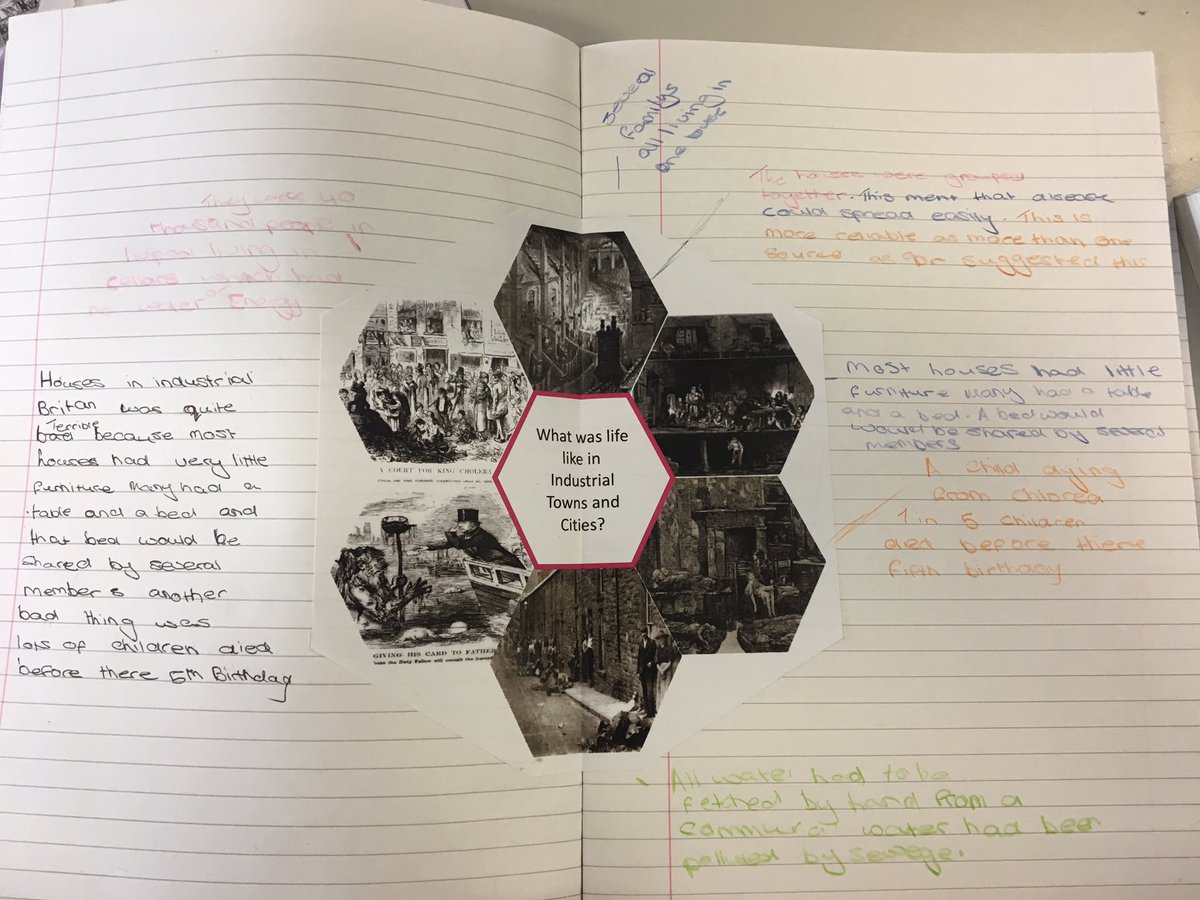 They were 40
thousand people in
living in
cellars which had
no water or Energy
Houses in industrial
Britan was quite
Terrible
bad because most
houses had very little
furniture Many had a
table and a bed and
that bed would be
shared by several
members another
bad thing was
lots of children died
before there 5th Birthday
familys
all living in
one house
The houses were grouped
together. This ment that disease
could spread easily. This is
more reliable as more than one
source as suggested this
Most houses had little
furniture Many had a table
and a bed. A bed would
would be shared by several
members
A child dying
from
1 in 5 children
died before there
fifth birthday
What was life
like in
Industrial
Towns and
Cities?
A COURT FOR KING CHOLERA
GIVING HIS CARD TO FATHER
All water had to be
fetched by hand from a
water had been
polluted by